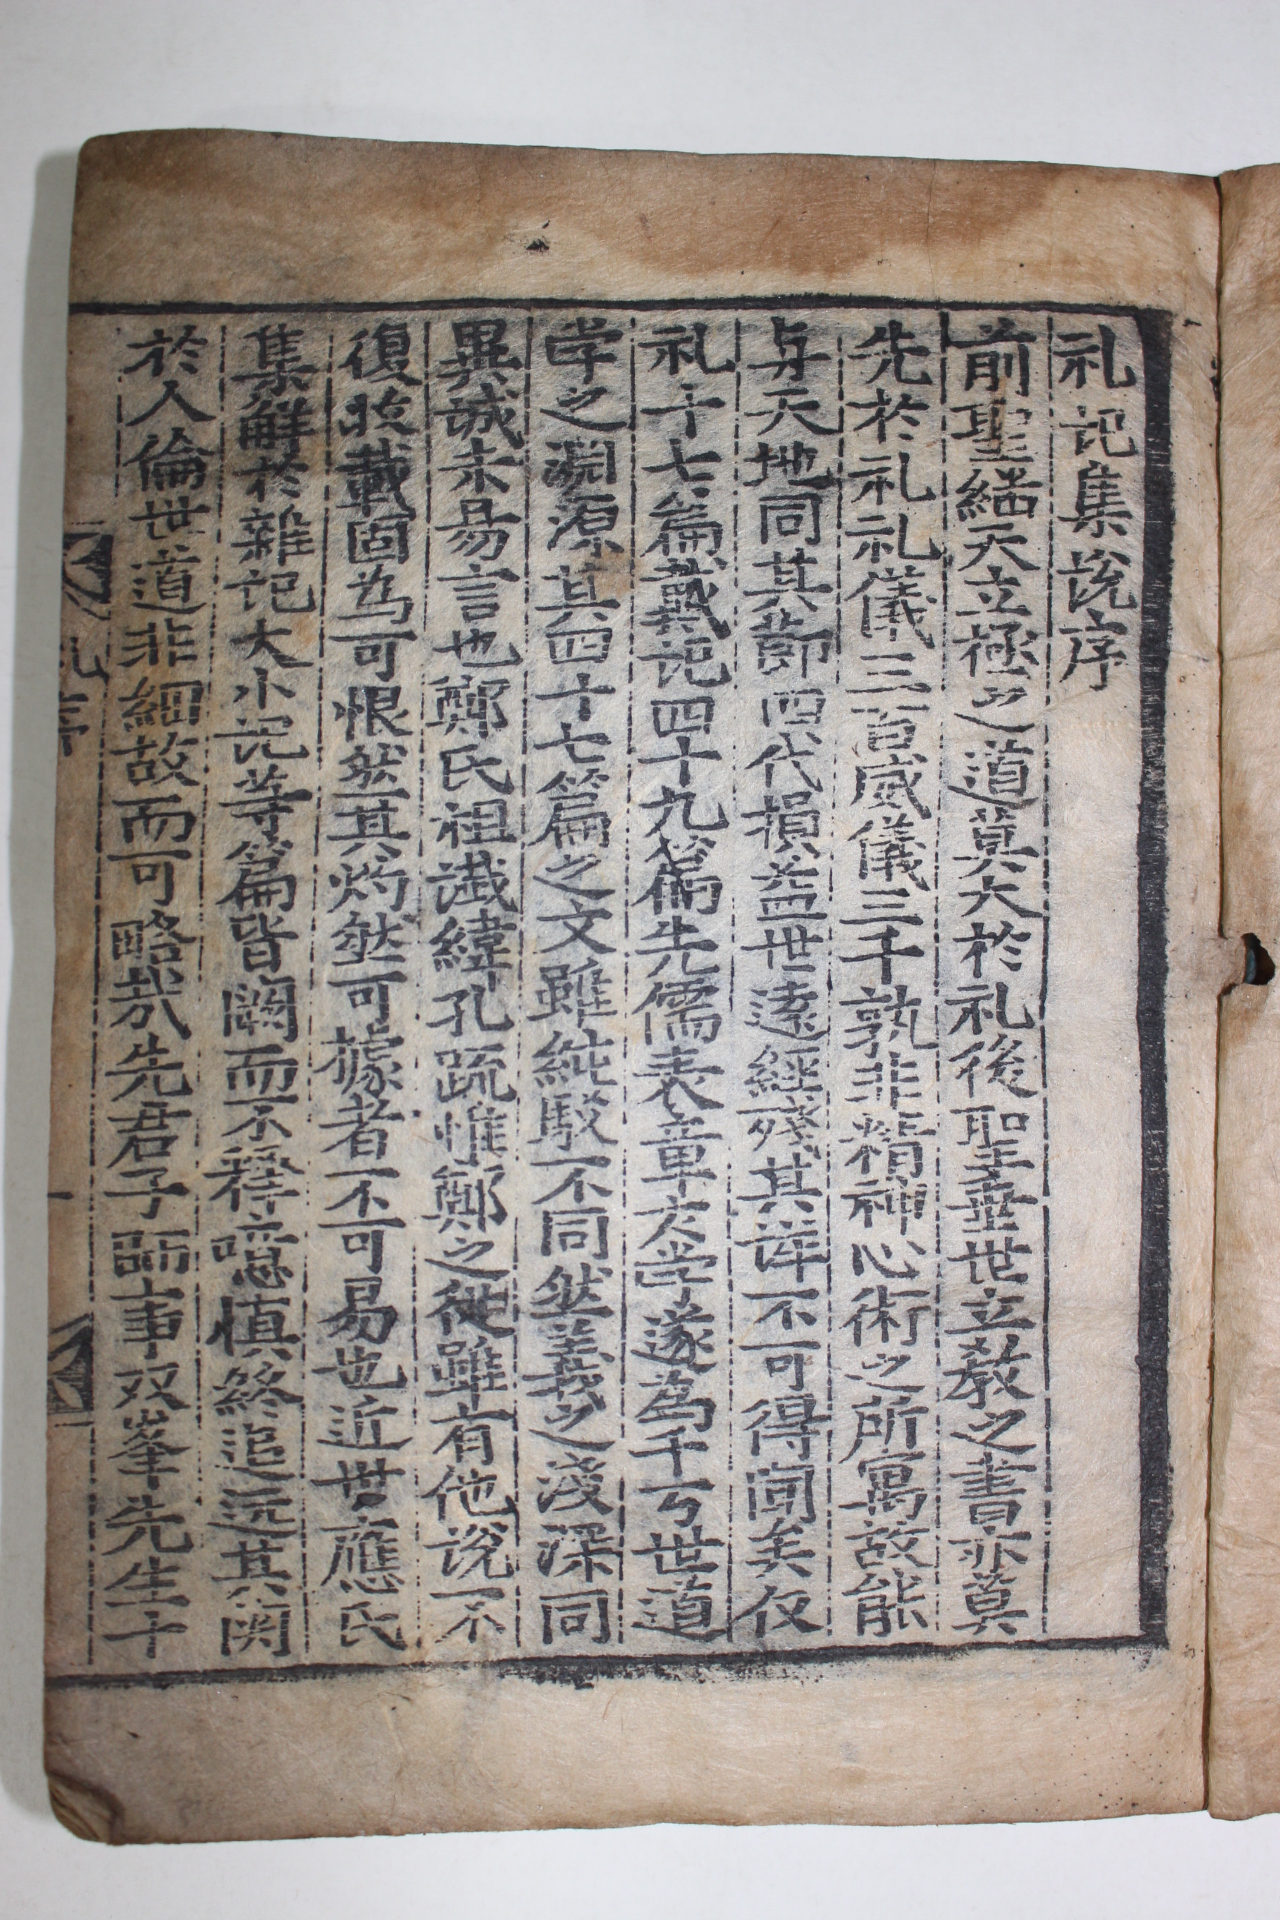 礼記集說序
前聖繼天立極之道莫大於礼後聖垂世立教之書亦莫
先於礼礼儀三百威儀三千孰非精神心術之所寓故能
与天地同其節四代損益世遠經殘其詳不可得聞矣仅
礼十七篇戴記四十九篇先儒表章大学遂為千万世道
学之淵源其四十七篇之文雖純駁不同然義之淺深同
異誠未易言也鄭氏祖讖緯孔疏惟鄭之從雖有他說不
復收載固為可恨然其灼然可據者不可易也近世應氏
集解於雜記大小記等篇皆闕而不釋噫慎終追远其関
於人倫世道非細故而可略哉先君子師事双峯先生十
礼序
一